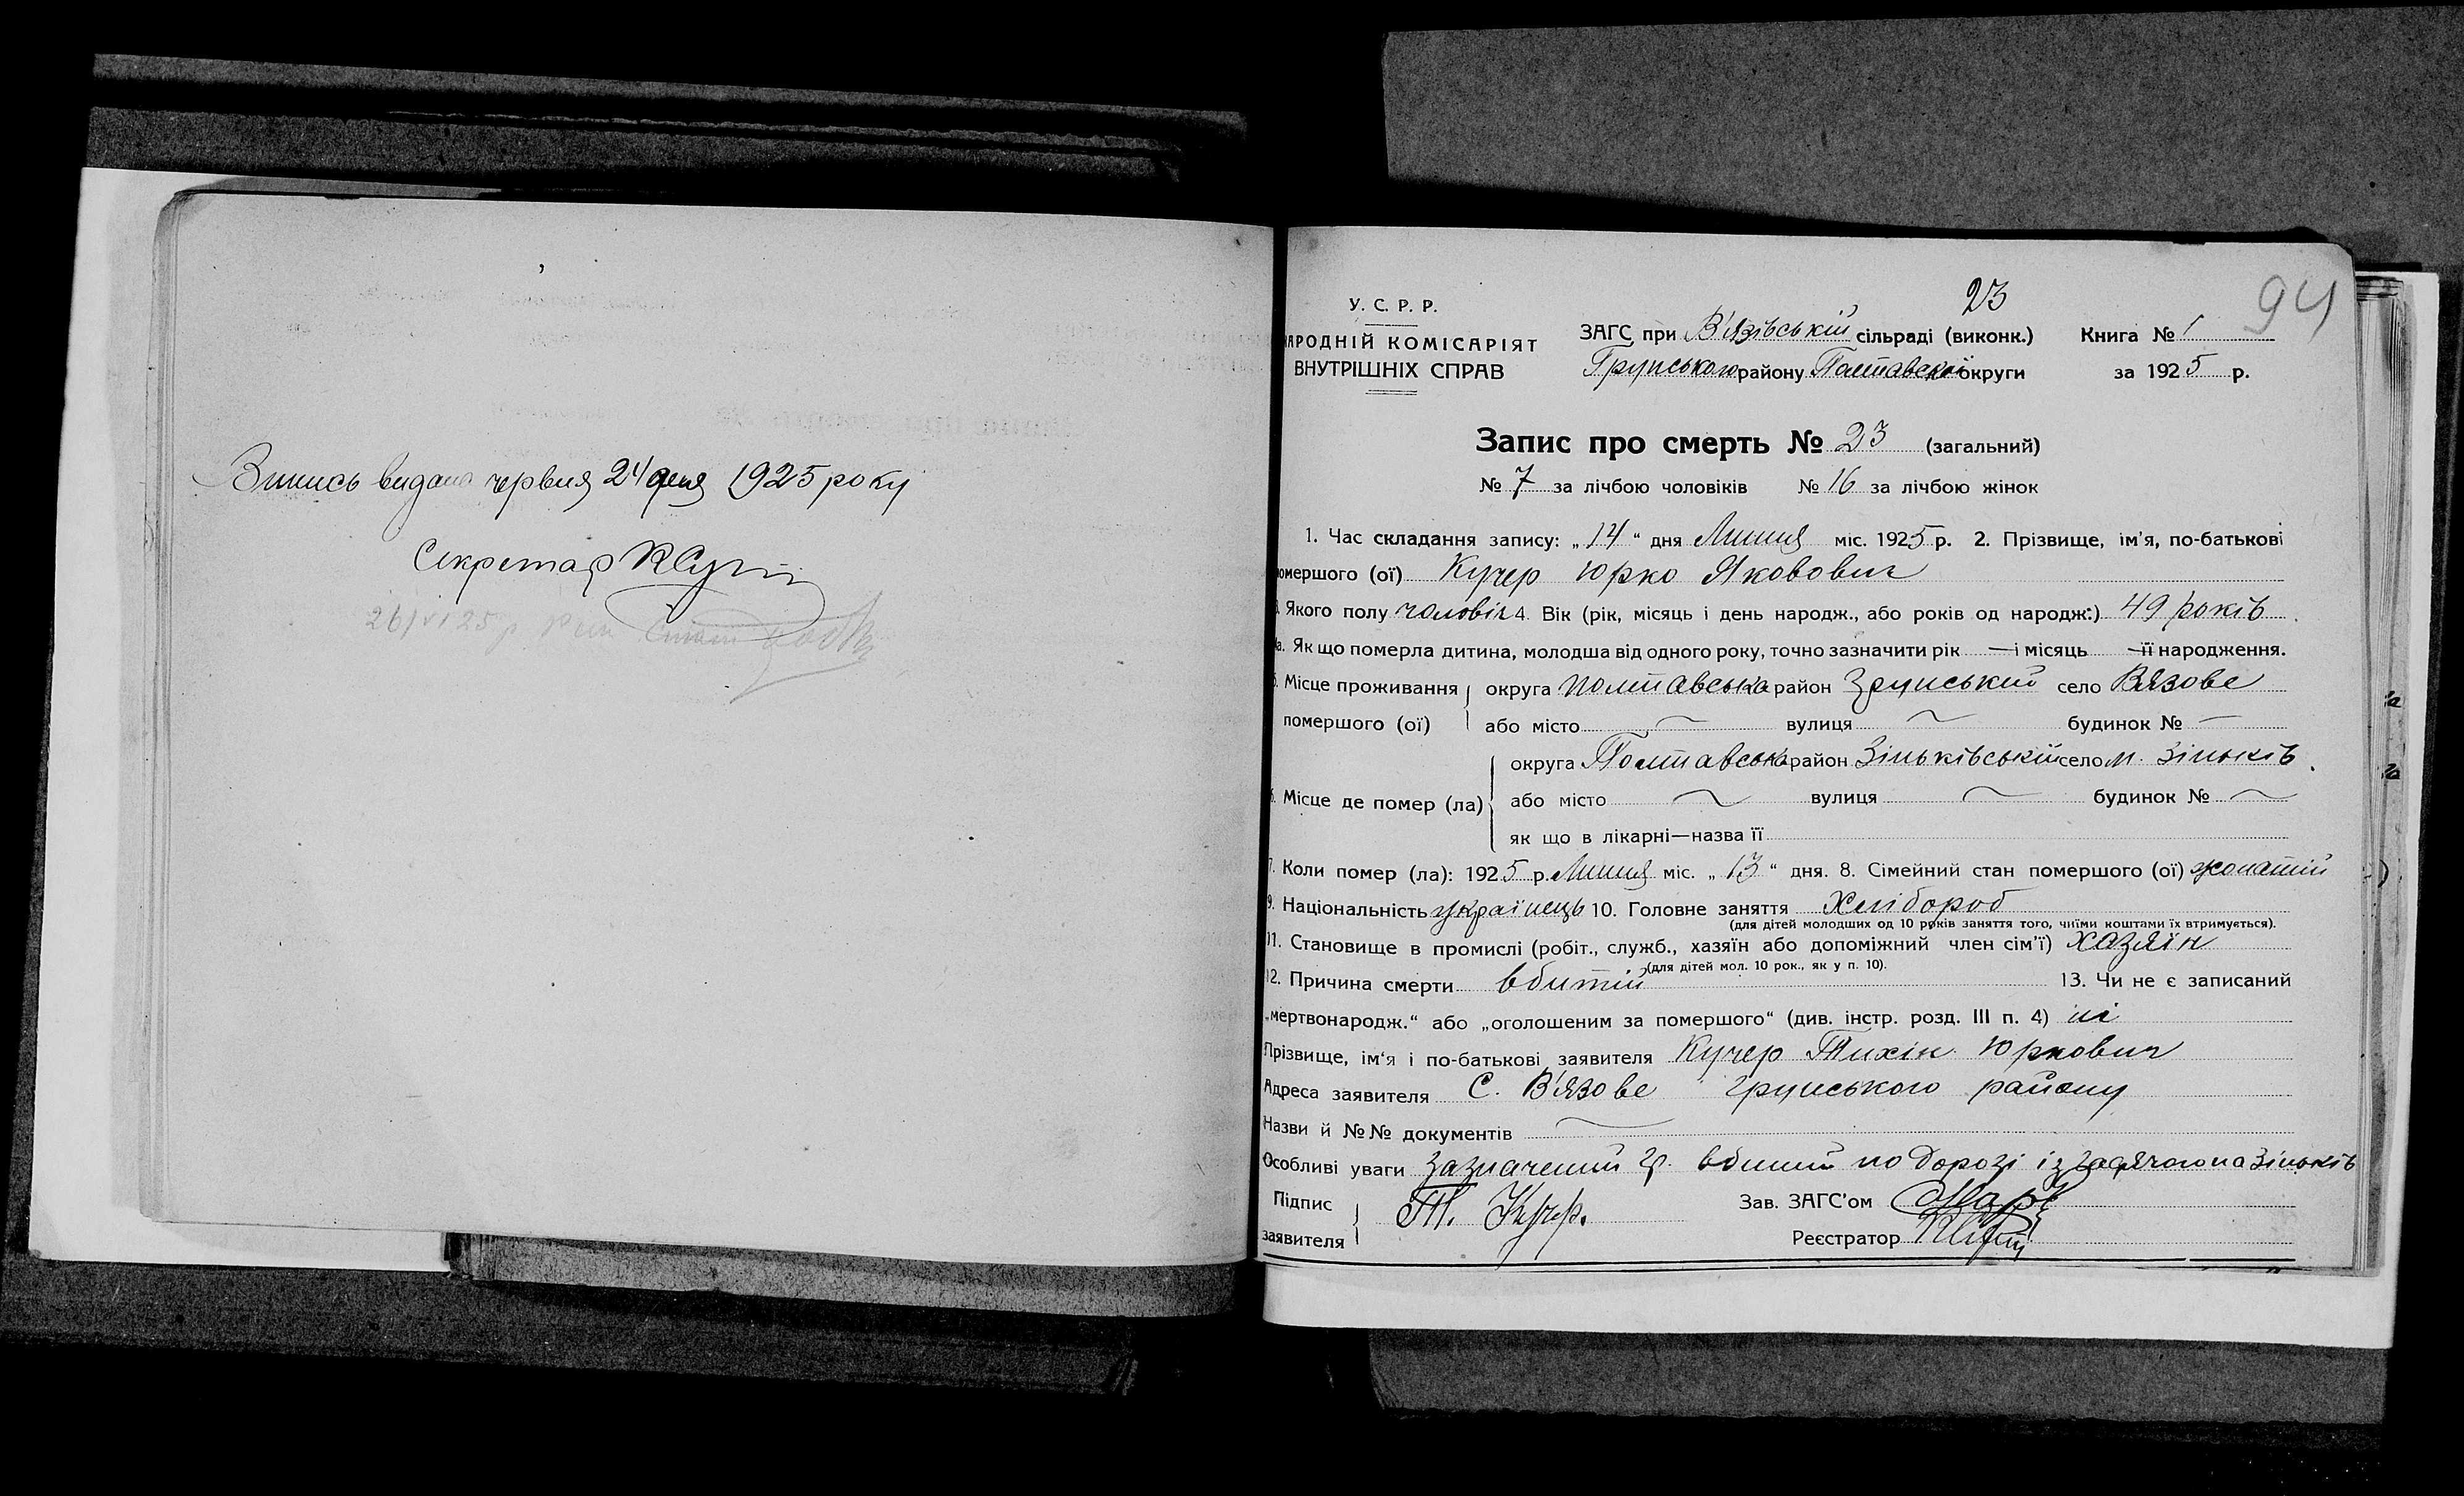 Випись видана червня 24 дня 1925 року
Секретар
26/VI 25 р
23
94
У. С. Р. Р.
НАРОДНІЙ КОМІСАРІЯТ
ВНУТРІШНІХ СПРАВ
ЗАГС при В'язівській сільраді (виконк.)
Грунського району Полтавской округи
Книга № 1
за 1925 р.
Запис про смерть № 23 (загальний)
№ 7 за лічбою чоловіків № 16 за лічбою жінок
1. Час складання запису: „14“ дня Липня міс. 1925 р. 2. Прізвище, ім'я, по-батькові
помершого (ої) Кучер Юрко Якович
3. Якого полу чоловік 4. Вік (рік, місяць і день народж., або років од народж.) 49 років
4а. Як що померла дитина, молодша від одного року, точно зазначити рік — і місяць — її народження.
5. Місце проживання округа Полтавська район Грунський село Вязове
помершого (ої) або місто ~ вулиця ~ будинок № —
округа Полтавська район Зіньківській село м. Зіньків.
6. Місце де помер (ла) або місто ~ вулиця ~ будинок № ~
як що в лікарні—назва її
7. Коли помер (ла): 1925 р. Липня міс. „13“ дня. 8. Сімейний стан помершого (ої) жонатий
9. Національність українець 10. Головне заняття Хлібороб
(для дітей молодших од 10 років заняття того, чиїми коштами їх втримується).
11. Становище в промислі (робіт., служб., хазяїн або допоміжний член сім'ї) хазяїн
(для дітей мол. 10 рок., як у п. 10).
12. Причина смерти вбитий 13. Чи не є записаний
„мертвонародж.“ або „оголошеним за помершого“ (див. інстр. розд. III п. 4) ні
Прізвище, ім'я і по-батькові заявителя Кучер Тихін Юркович
Адреса заявителя С. В'язове Грунського району
Назви й №№ документів ~
Особливі уваги Зазначений гр. вбитий по дорозі із Гадячого на Зіньків
Підпис заявителя Т. Кучер.
Зав. ЗАГС'ом
Реєстратор